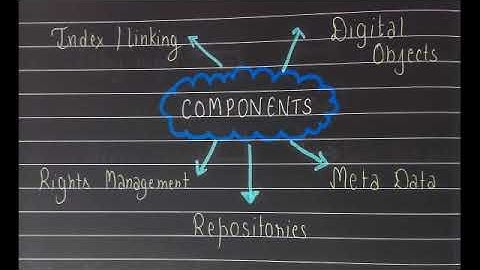 Index / linking
Digital
Objects
COMPONENTS
Rights Management
Meta Data
Repositories